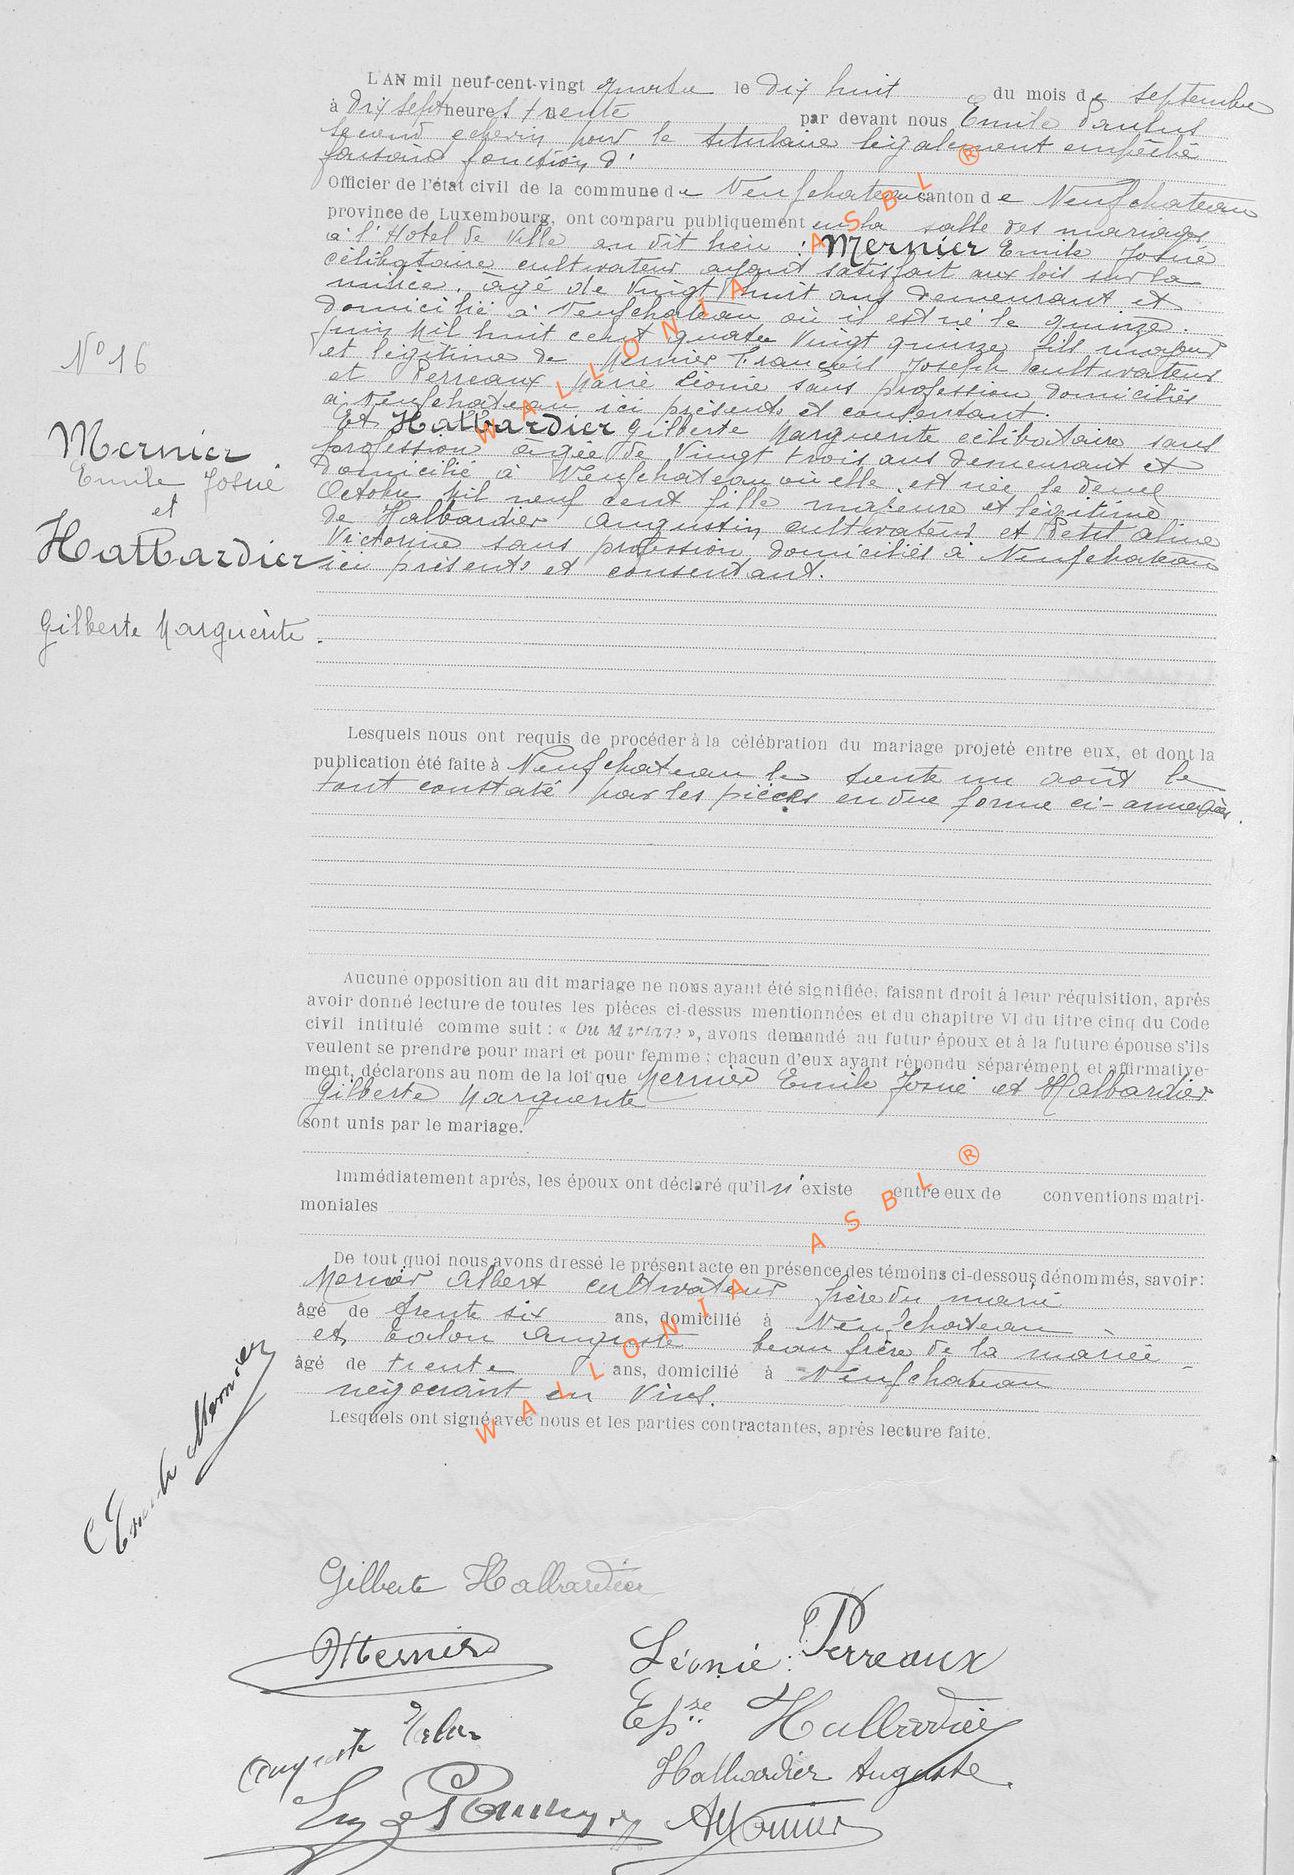 L'AN mil neuf-cent-vingt quatre le Dix huit du mois de Septembre
à Dix sept heures trente par devant nous Emile Paulus
Second echevin pour le titulaire légalement empêché
faisant fonction d'
Officier de l'état civil de la commune de Neufchateau canton de Neufchateau
province de Luxembourg, ont comparu publiquement en la salle des mariages
à l'Hotel de Ville au dit lieu : Mernier Emile Josué
célibataire cultivateur ayant satisfait aux lois sur la
milice, âgé de Vingt huit ans demeurant et
domicilié à Neufchateau où il est né le quinze
juin Mil huit cent quatre Vingt quinze fils majeur
et légitime de Mernier François Joseph cultivateur
et Perreaux Marie Léonie sans profession domiciliés
à Neufchateau ici présents et consentant.
Et Halbardier Gilberte Marguerite célibataire sans
profession âgée de Vingt trois ans demeurant et
domicilié à Neufchateau où elle est née le deux
Octobre Mil neuf cent fille majeure et légitime
de Halbardier Augustin cultivateur et Petit Aline
Victorine sans profession domiciliés à Neufchateau
ici présents et consentant.
N° 16
Mernier
Emile Josué
et
Halbardier
Gilberte Marguerite.
Lesquels nous ont requis de procéder à la célébration du mariage projeté entre eux, et dont la
publication été faite à Neufchateau le trente un août le
tout constaté par les pièces en due forme ci-annexées.
Aucune opposition au dit mariage ne nous ayant été signifiée, faisant droit à leur réquisition, après
avoir donné lecture de toutes les pièces ci-dessus mentionnées et du chapitre VI du titre cinq du Code
civil intitulé comme suit : « Du Mariage », avons demandé au futur époux et à la future épouse s'ils
veulent se prendre pour mari et pour femme ; chacun d'eux ayant répondu séparément et affirmative-
ment, déclarons au nom de la loi que Mernier Emile Josué et Halbardier
Gilberte Marguerite
sont unis par le mariage.
Immédiatement après, les époux ont déclaré qu'il n'existe entre eux de conventions matri-
moniales
De tout quoi nous avons dressé le présent acte en présence des témoins ci-dessous dénommés, savoir :
Mernier Albert cultivateur frère du marié
âgé de trente six ans, domicilié à Neufchateau
et Calon Auguste beau frère de la mariée
âgé de trente ans, domicilié à Neufchateau
négociant en Vins.
Lesquels ont signé avec nous et les parties contractantes, après lecture faite.
Emile Mernier
Gilberte Halbardier
Mernier
Léonie Perreaux
Epse Halbardier
Auguste Calon
Halbardier Auguste.
WALLONIA ASBL ®
WALLONIA ASBL ®